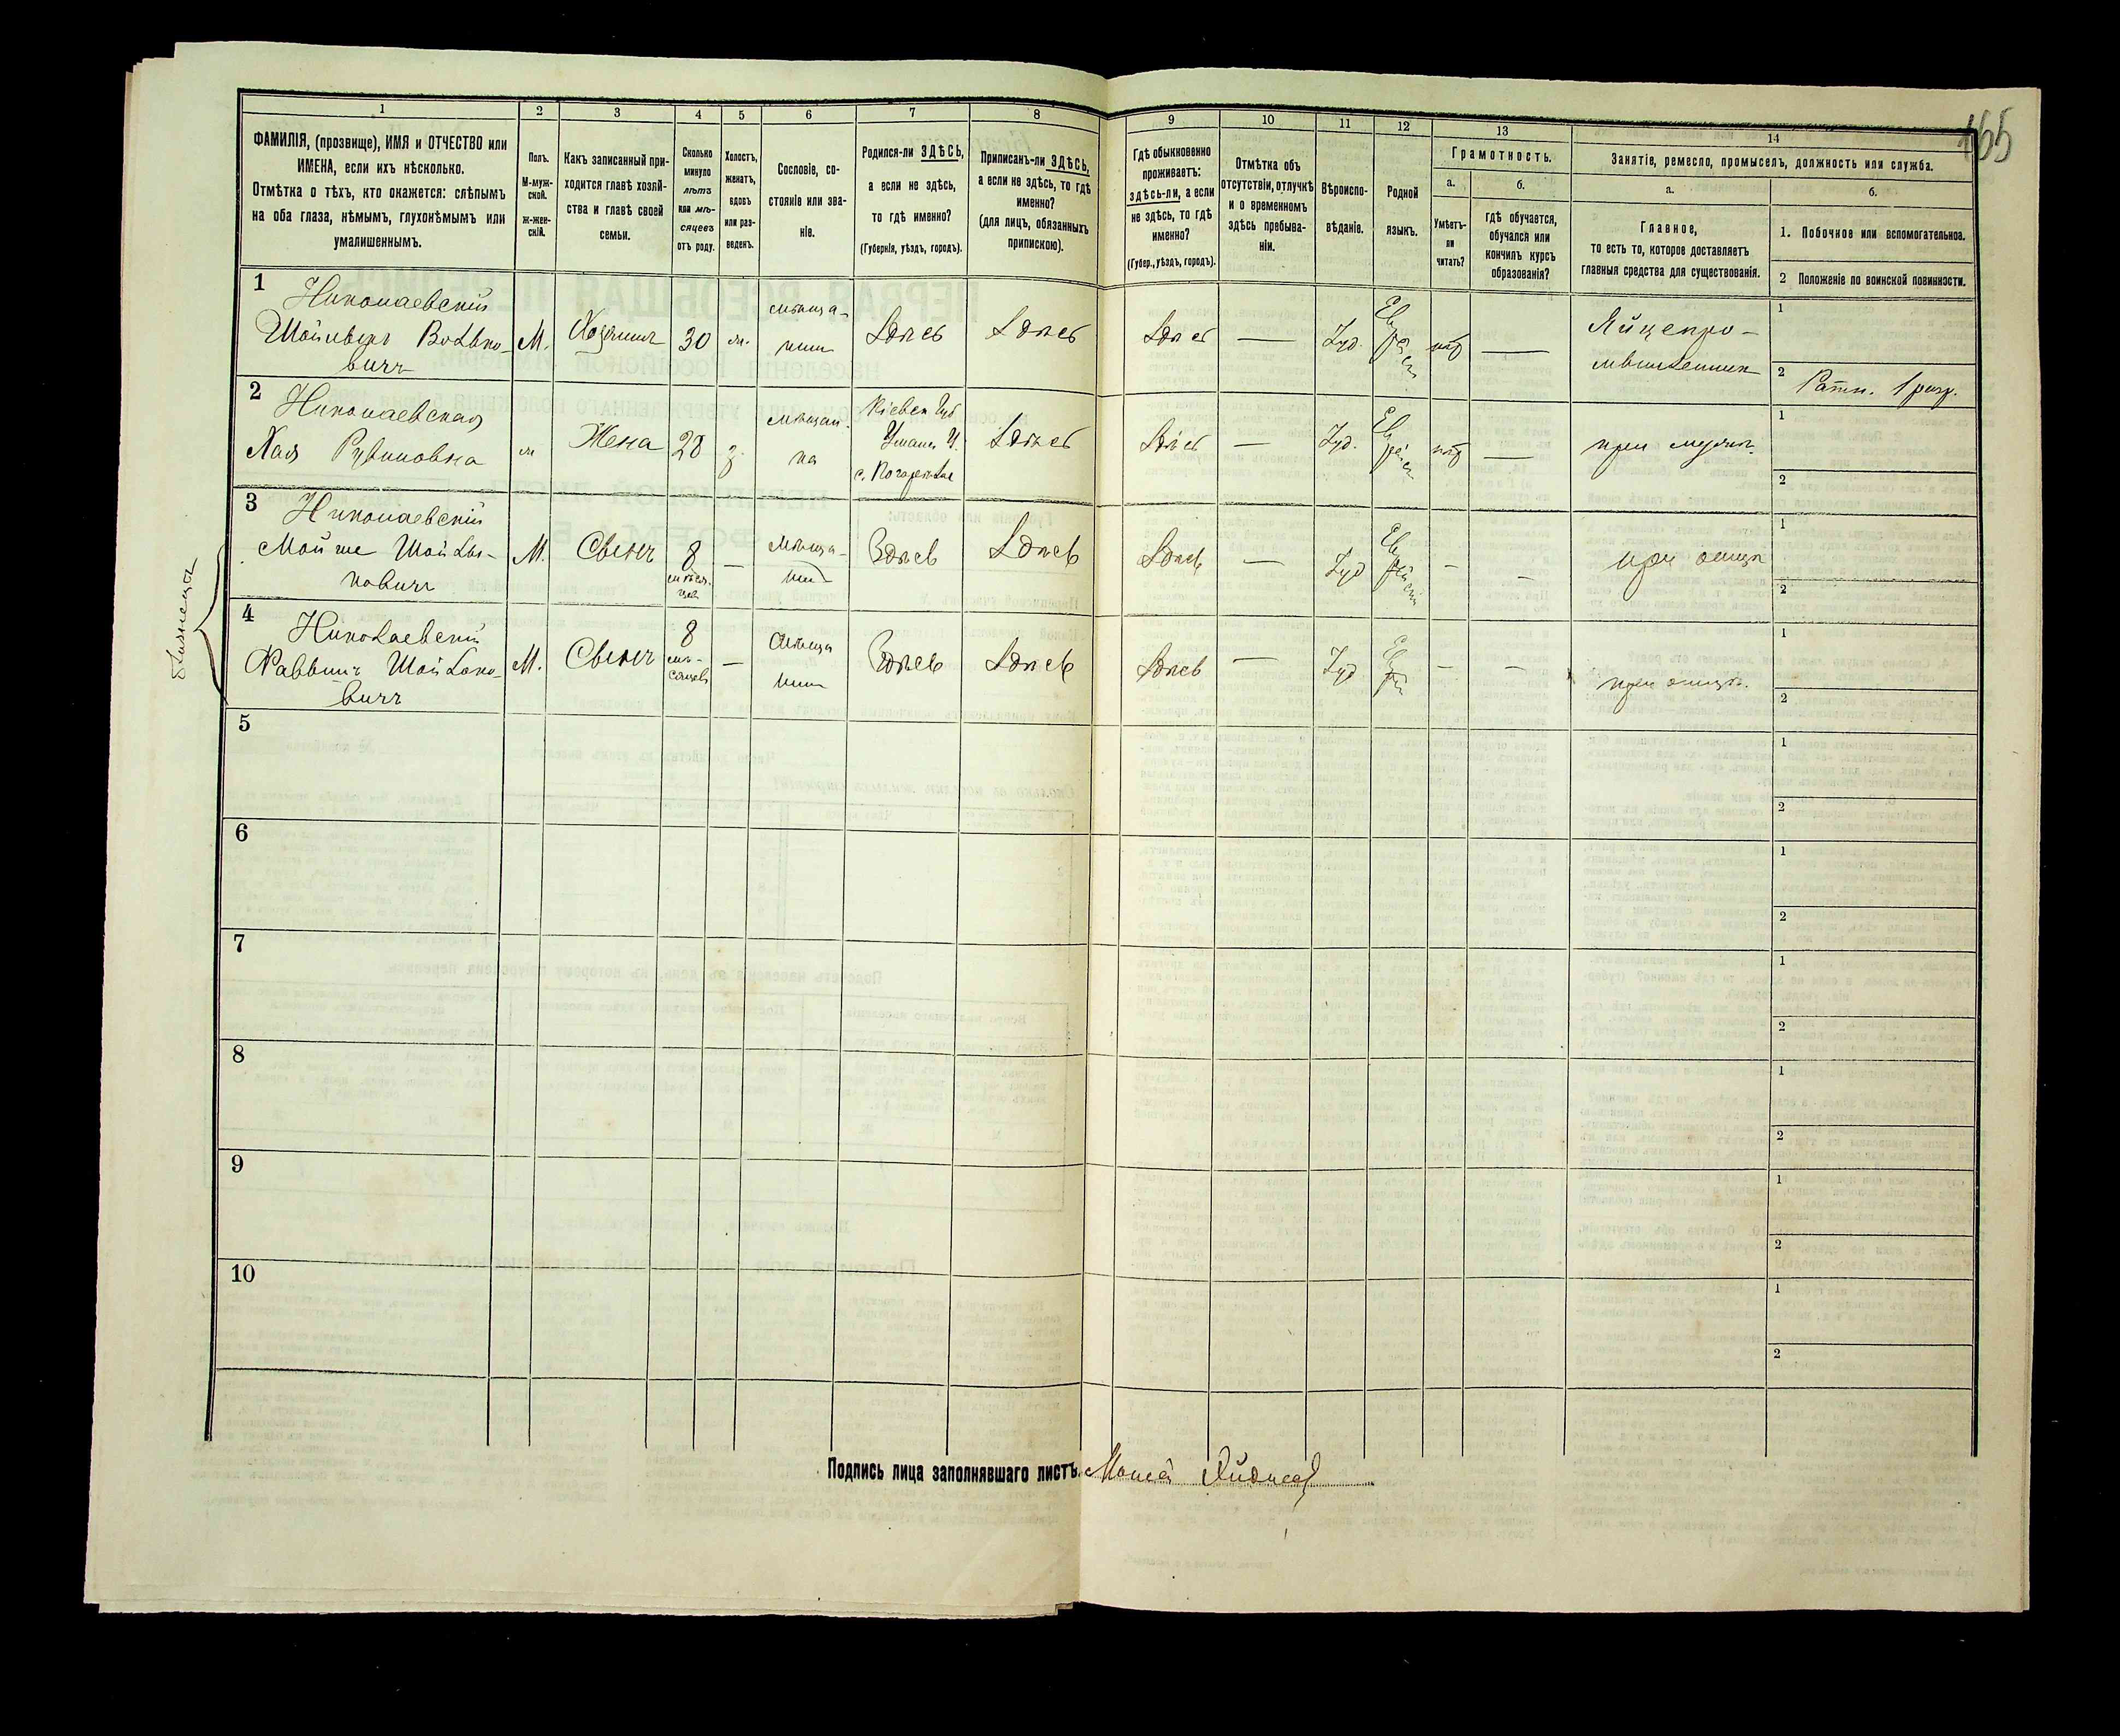 165
1
2
3
4
5
6
7
8
9
10
11
12
13
14
ФАМИЛІЯ, (прозвище), ИМЯ и ОТЧЕСТВО или
ИМЕНА, если ихъ нѣсколько.
Отмѣтка о тѣхъ, кто окажется: слѣпымъ
на оба глаза, нѣмымъ, глухонѣмымъ или
умалишеннымъ.
Полъ.
М-муж-
ской.
ж-жен-
скій.
Какъ записанный при-
ходится главѣ хозяй-
ства и главѣ своей
семьи.
Сколько
минуло
лѣтъ
или мѣ-
сяцевъ
отъ роду.
Холостъ,
женатъ,
вдовъ
или раз-
веденъ.
Сословіе, со-
стояніе или зва-
ніе.
Родился-ли ЗДѢСЬ,
а если не здѣсь,
то гдѣ именно?
(Губернія, уѣздъ, городъ).
Приписанъ-ли ЗДѢСЬ,
а если не здѣсь, то гдѣ
именно?
(для лицъ, обязанныхъ
припискою).
Гдѣ обыкновенно
проживаетъ:
здѣсь-ли, а если
не здѣсь, то гдѣ
именно?
(Губер., уѣздъ, городъ).
Отмѣтка объ
отсутствіи, отлучкѣ
и о временномъ
здѣсь пребыва-
ніи.
Вѣроиспо-
вѣданіе.
Родной
языкъ.
Грамотность.
а.
б.
Умѣетъ-
ли
читать?
гдѣ обучается,
обучался или
кончилъ курсъ
образованія?
Занятіе, ремесло, промыселъ, должность или служба.
а.
б.
Главное,
то есть то, которое доставляетъ
главныя средства для существованія.
1. Побочное или вспомогательное.
2 Положеніе по воинской повинности.
1
Николаевскій
Шойлыкъ Волько-
вичъ
М.
Хозяинъ
30
ж.
мѣща-
нин
Здѣсь
Здѣсь
Здѣсь
—
Іуд.
Еврейск
нѣт
—
Яйцепро-
мышленник
1
2
Ратн. 1 разр.
2
Николаевская
Хая Рувиновна
ж
Жена
28
з.
мѣщан-
ка
Кіевск Губ
Уманск У.
Здѣсь
Здѣсь
—
Іуд.
Еврейск
нѣт
—
при мужѣ.
1
2
близнецы
3
Николаевскій
Мойше Шойлы-
ковичъ
М.
Сынъ
8
мѣся-
цев
—
мѣща-
нин
Здѣсь
Здѣсь
Здѣсь
—
Іуд
Еврейскій
—
—
при отцѣ
1
2
4
Николаевскій
Раввинъ Шойлоко-
вичъ
М.
Сынъ
8
мѣ-
сяцевъ
—
мѣща
нин
Здѣсь
Здѣсь
Здѣсь
—
Іуд
Еврей
—
—
при отцѣ.
1
2
5
1
2
6
1
2
7
1
2
8
1
2
9
1
2
10
1
2
Подпись лица заполнявшаго листъ.